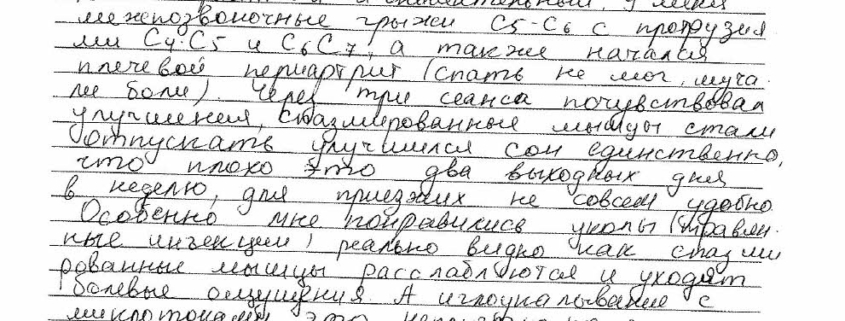 У меня
межпозвоночные грыжи С5-С6 с протрузия
ми С4-С5 и С6С7, а также начался
плечевой периартрит (спать не мог, муча-
ли боли). Через три сеанса почувствовал
улучшения, спазмированные мышцы стали
отпускать улучшился сон единственно,
что плохо это два выходных дня
в неделю, для приезжих не совсем удобно
Особенно мне понравились уколы (травян-
ные инъекции) реально видно как спазми
рованные мышцы расслабляются и уходят
болевые ощущения А иглоукалывание с
микротоками это